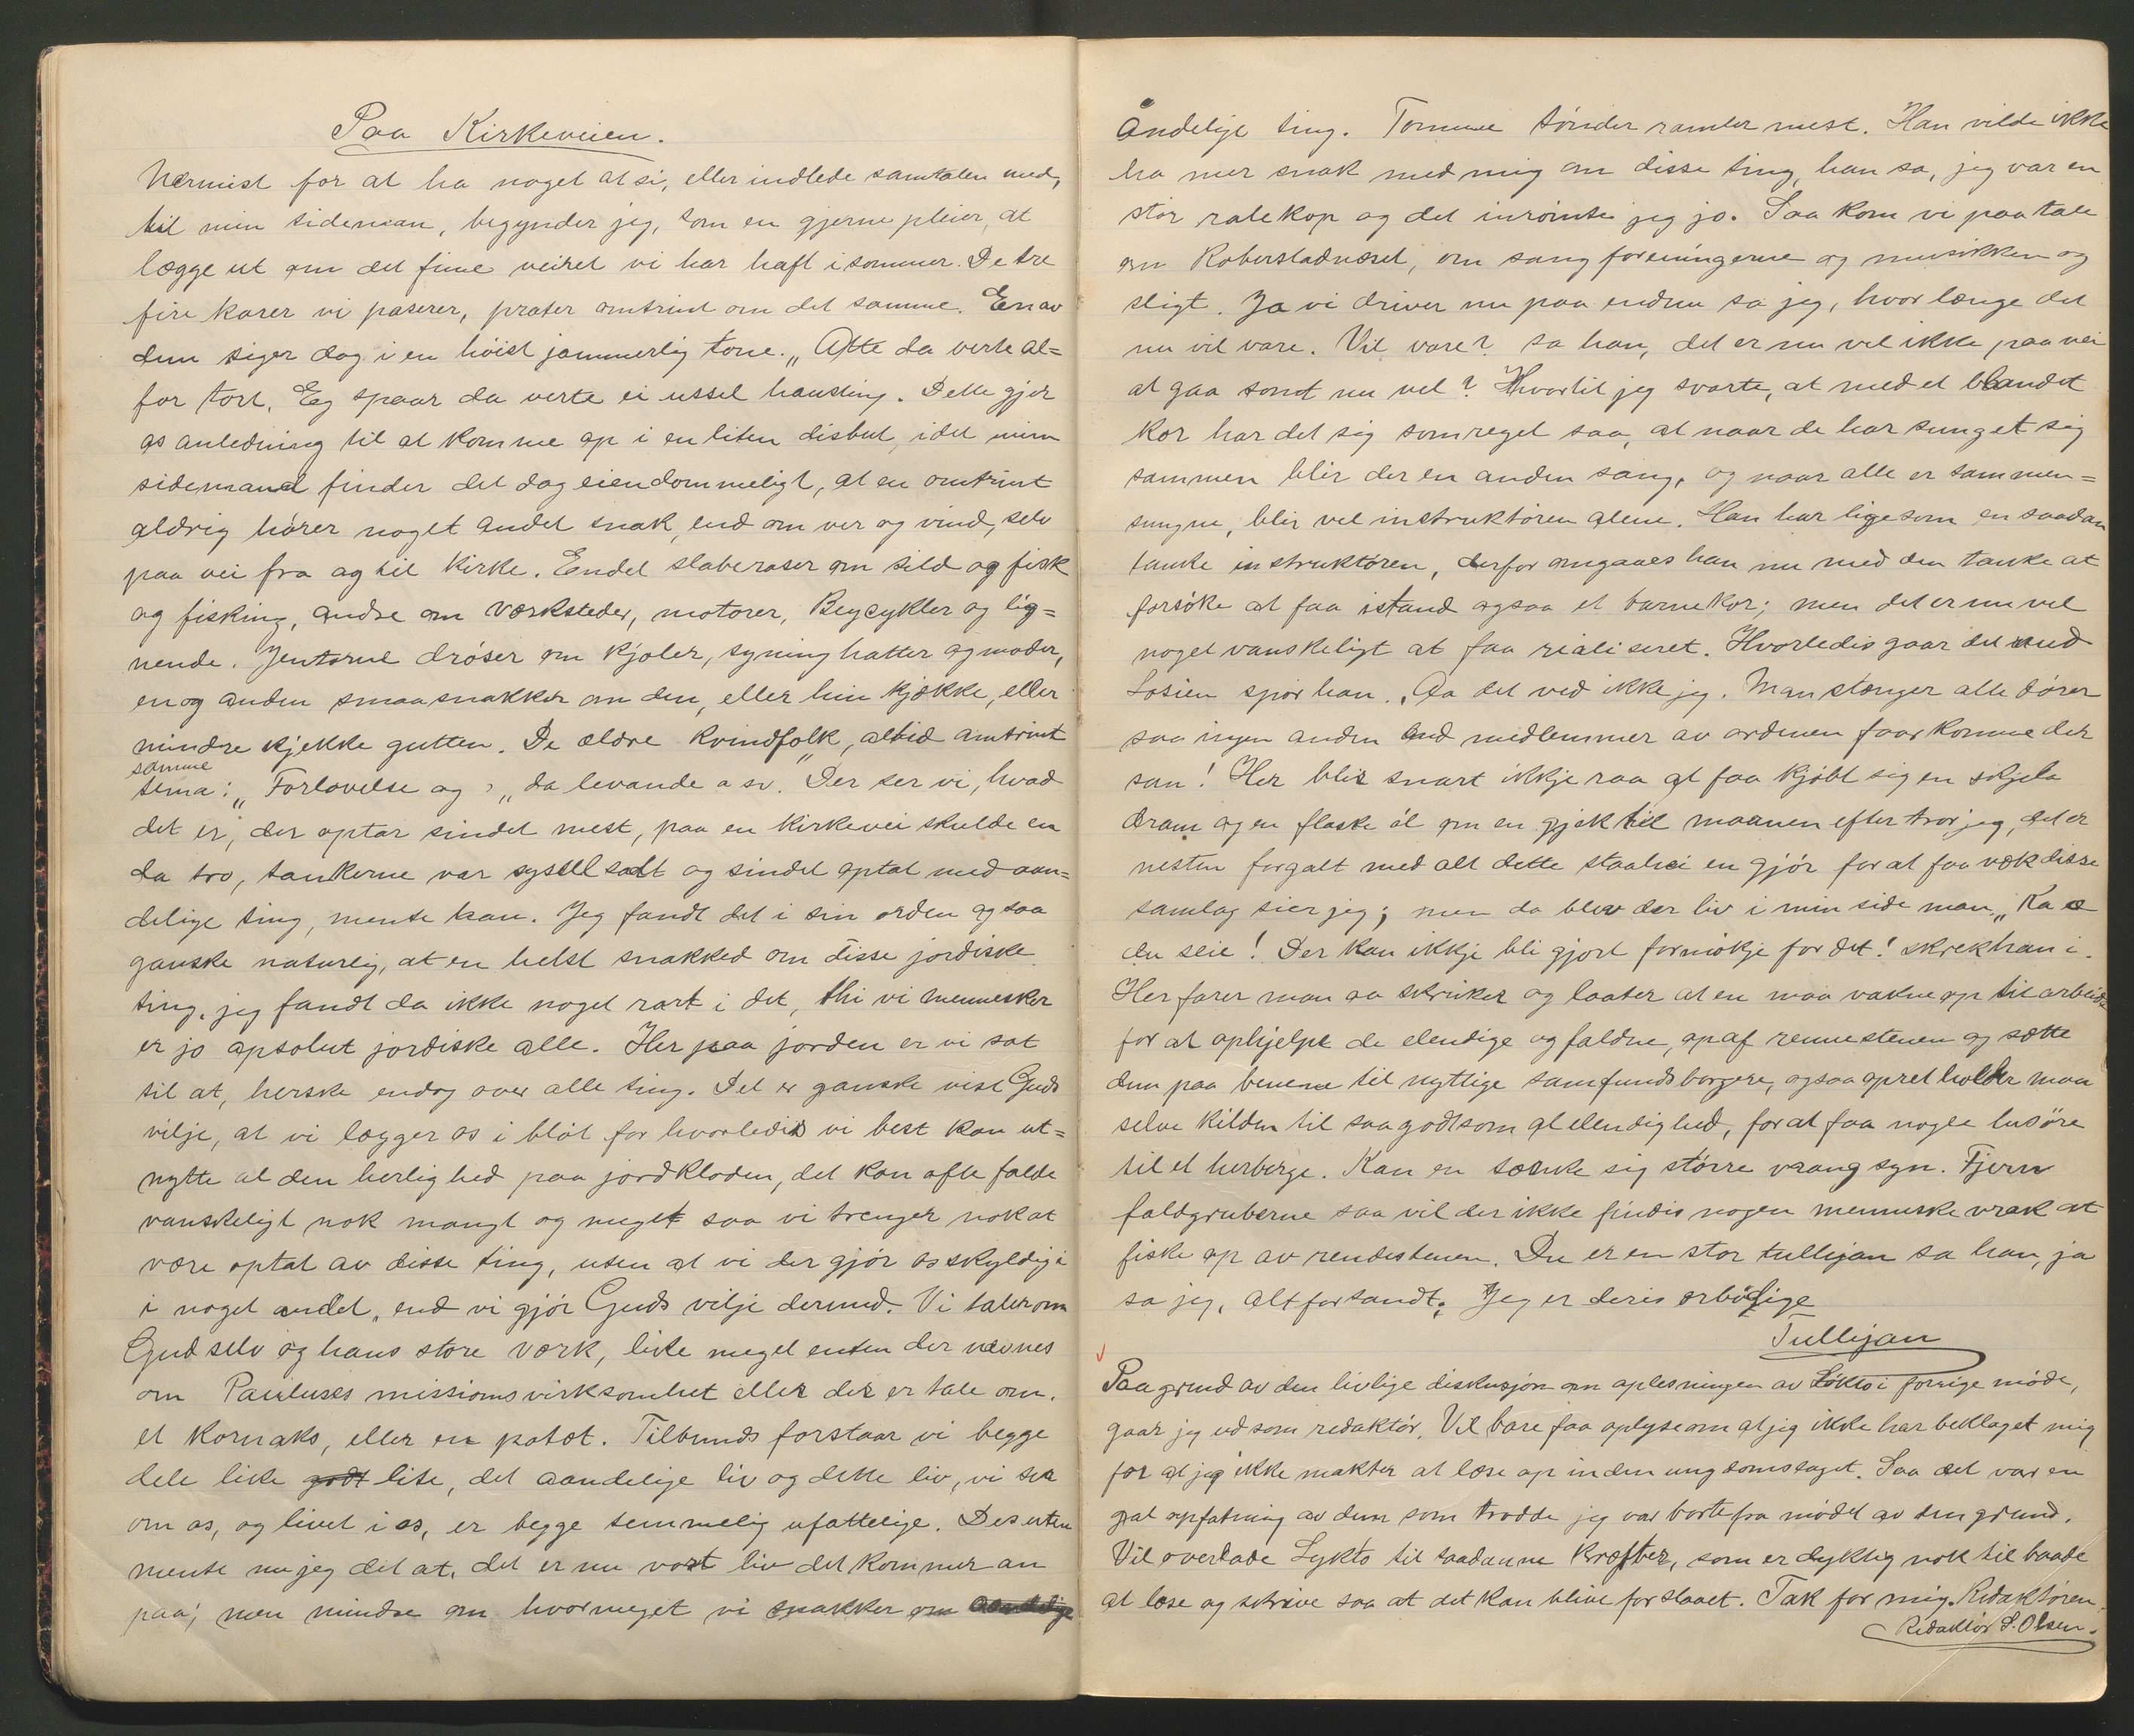 Paa Kirkeveien.
Nærmist for at ha noget at si, eller indlede samtalen med,
til min sideman, begynder jeg, som en gjerne pleier, at
lægge ut om det fine veiret vi har haft i sommer. De tre
fire karer vi paserer, prater omtrint om det samme. En av
dem siger dog i en höist jammerlig tone. „Atte da verte al=
for tort. Eg spaar da verte ei ussel hausting. Dette gjer
os anledning til at komme op i en liten disbut, idet min
sidemand finder det dog eiendommeligt, at en omtrint
aldrig hører noget andet snak, end om ver og vind, selv
paa vei fra og til Kirke. Endel slaberaser om sild og fisk
og fisking, andre om Værksteder, motorer, Beycykler og lig=
nende. Jentorne dröser om Kjoler, syning hatter og moder,
en og anden smaasnakker om den, eller hin kjække, eller
mindre kjekke gutten. De ældre Kvindfolk, altid amtrint
samme
tema: „Forlovelse og „da levande a sv. Der ser vi, hvad
det er, der optar sindet mest, paa en Kirkevei skulde en
da tro, tankerne var sysselsatt og sindet optat med aan=
delige ting, mente han. Jeg fandt det i sin orden og saa
ganske naturlig, at en helst snakked om disse jordiske
ting, jeg fandt da ikke noget rart i det, thi vi mennesker
er jo apsolut jordiske alle. Her paa jorden er vi sat
til at, herske endog over alle ting. Det er ganske vist Guds
vilje, at vi lægger os i blöt for hvorledis vi best kan ut=
nytte al den herlighed paa jordkloden, det kan ofte falde
vanskeligt nok mangt og meget saa vi trenger nok at
være optat av disse ting, uten at vi der gjör os skyldig i
i noget andet, end vi gjör Guds vilje dermed. Vi taler om
Gud selv og hans store værk, like meget enten der nævnes
om Pauluses missionsvirksomhet eller der er tale om.
et Kornaks, eller en potet. Tilbunds forstaar vi begge
dele like godt lite, det aandelige liv og dette liv, vi ser
om os, og livet i os, er begge temmelig ufattelige. Desuten
mente nu jeg det at, det er nu vort liv det kommer an
paa; men mindre om hvormeget vi snakker om aandelige
Åndelige ting. Tomme tönder ramler mest. Han vilde ikke
ha mer snak med mig om disse ting, han sa, jeg var en
stör rålekop og det inrömte jeg jo. Saa kom vi paa tale
om Roberstadneset, om sangforeningerne og musikken og
sligt. Ja vi driver nu paa endnu sa jeg, hvor længe det
nu vil vare. Vil vare? sa han, det er nu vel ikke paa vei
at gaa sond nu vel? Hvortil jeg svarte, at med et blandet
kor har det sig somregel saa, at naar de har sunget sig
sammen blir der en anden sang, og naar alle er sammen=
sungne, blir vel instruktören alene. Han har ligesom en saadan
tanke instruktören, derfor omgaaes han nu med den tanke at
forsöke at faa istand ogsaa et barnekor; men det er nu vel
noget vanskeligt at faa realiseret. Hvorledis gaar det med
Losien spör han. Aa det ved ikke jeg. Man stænger alle dörer
saa ingen anden end medlemmer av ordenen faar komme der
san! Her blir snart ikkje raa at faa kjöbt sig en skjela
dram og en flaske öl om en gjek til maanen efter tror jeg, det er
nesten forgalt med alt dette staahei en gjör for at faa væk disse
samlag sier jeg; men da blev der liv i min side man. „Ka æ
du seie! Der kan ikkje bli gjort formökje for det! skrek han i.
Her farer man aa skriker og laater at en maa vakne op til arbeide
for at ophjelpe de elendige og faldne, op af rennestenen og sætte
dem paa benene til nyttige samfundsborgere, ogsaa opretholder man
selve kilden til saagodtsom al elendighed, for at faa nogle lusöre
til et herberge. Kan en tænke sig större vrangsyn. Fjern
faldgruberne saa vil der ikke findis nogen menneske vrak at
fiske op av rendestenen. Du er en stor tullijan sa han, ja
sa jeg, alt for sandt. Jeg er deris ærbödige
Tullijan
Paa grund av den livlige diskusjon om oplesningen av Lökto i forrige möde,
gaar jeg ud som redaktör. Vil bare faa oplyse om at jeg ikke har beklaget mig
for at jeg ikke makter at læse op inden ungdomslaget. Saa det var en
gal opfatning av dem som trodde jeg var borte fra mödet av den grund.
Vil overlade Lykto til saadanne Kræfter, som er dyktig nok til baade
at læse og skrive saa at det kan blive forstaaet. Tak for mig. Redaktören.
Redaktör S. Olsen.